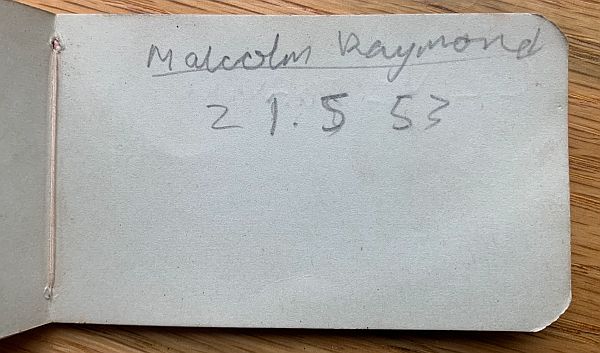 Malcolm Raymond
21.5 53